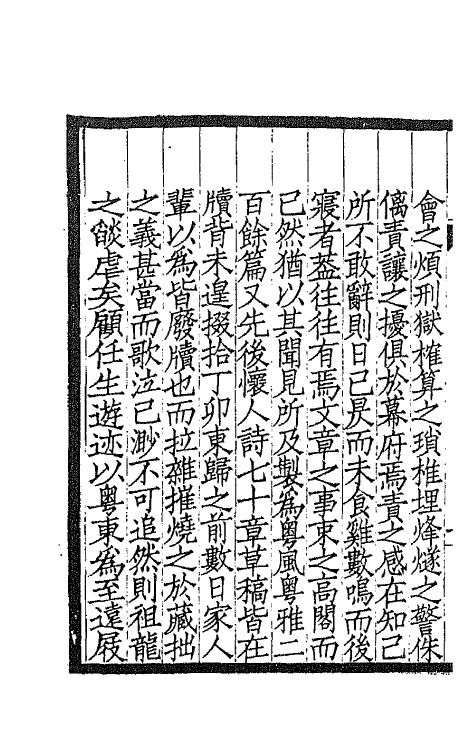 會之煩刑獄榷算之瑣椎埋烽燧之警侏
㒧責讓之擾俱於幕府焉責之感在知己
所不敢辭則日已昃而未食雞數鳴而後
寢者蓋往往有焉文章之事束之高閣而
已然猶以其聞見所及製為粵風粵雅二
百餘篇又先後懷人詩七十章草稿皆在
牘背未遑掇拾丁卯東歸之前數日家人
輩以為皆廢牘也而拉雜摧燒之於藏拙
之義甚當而歌泣已渺不可追然則祖龍
之燄虐矣顧任生遊迹以粵東為至遠屐